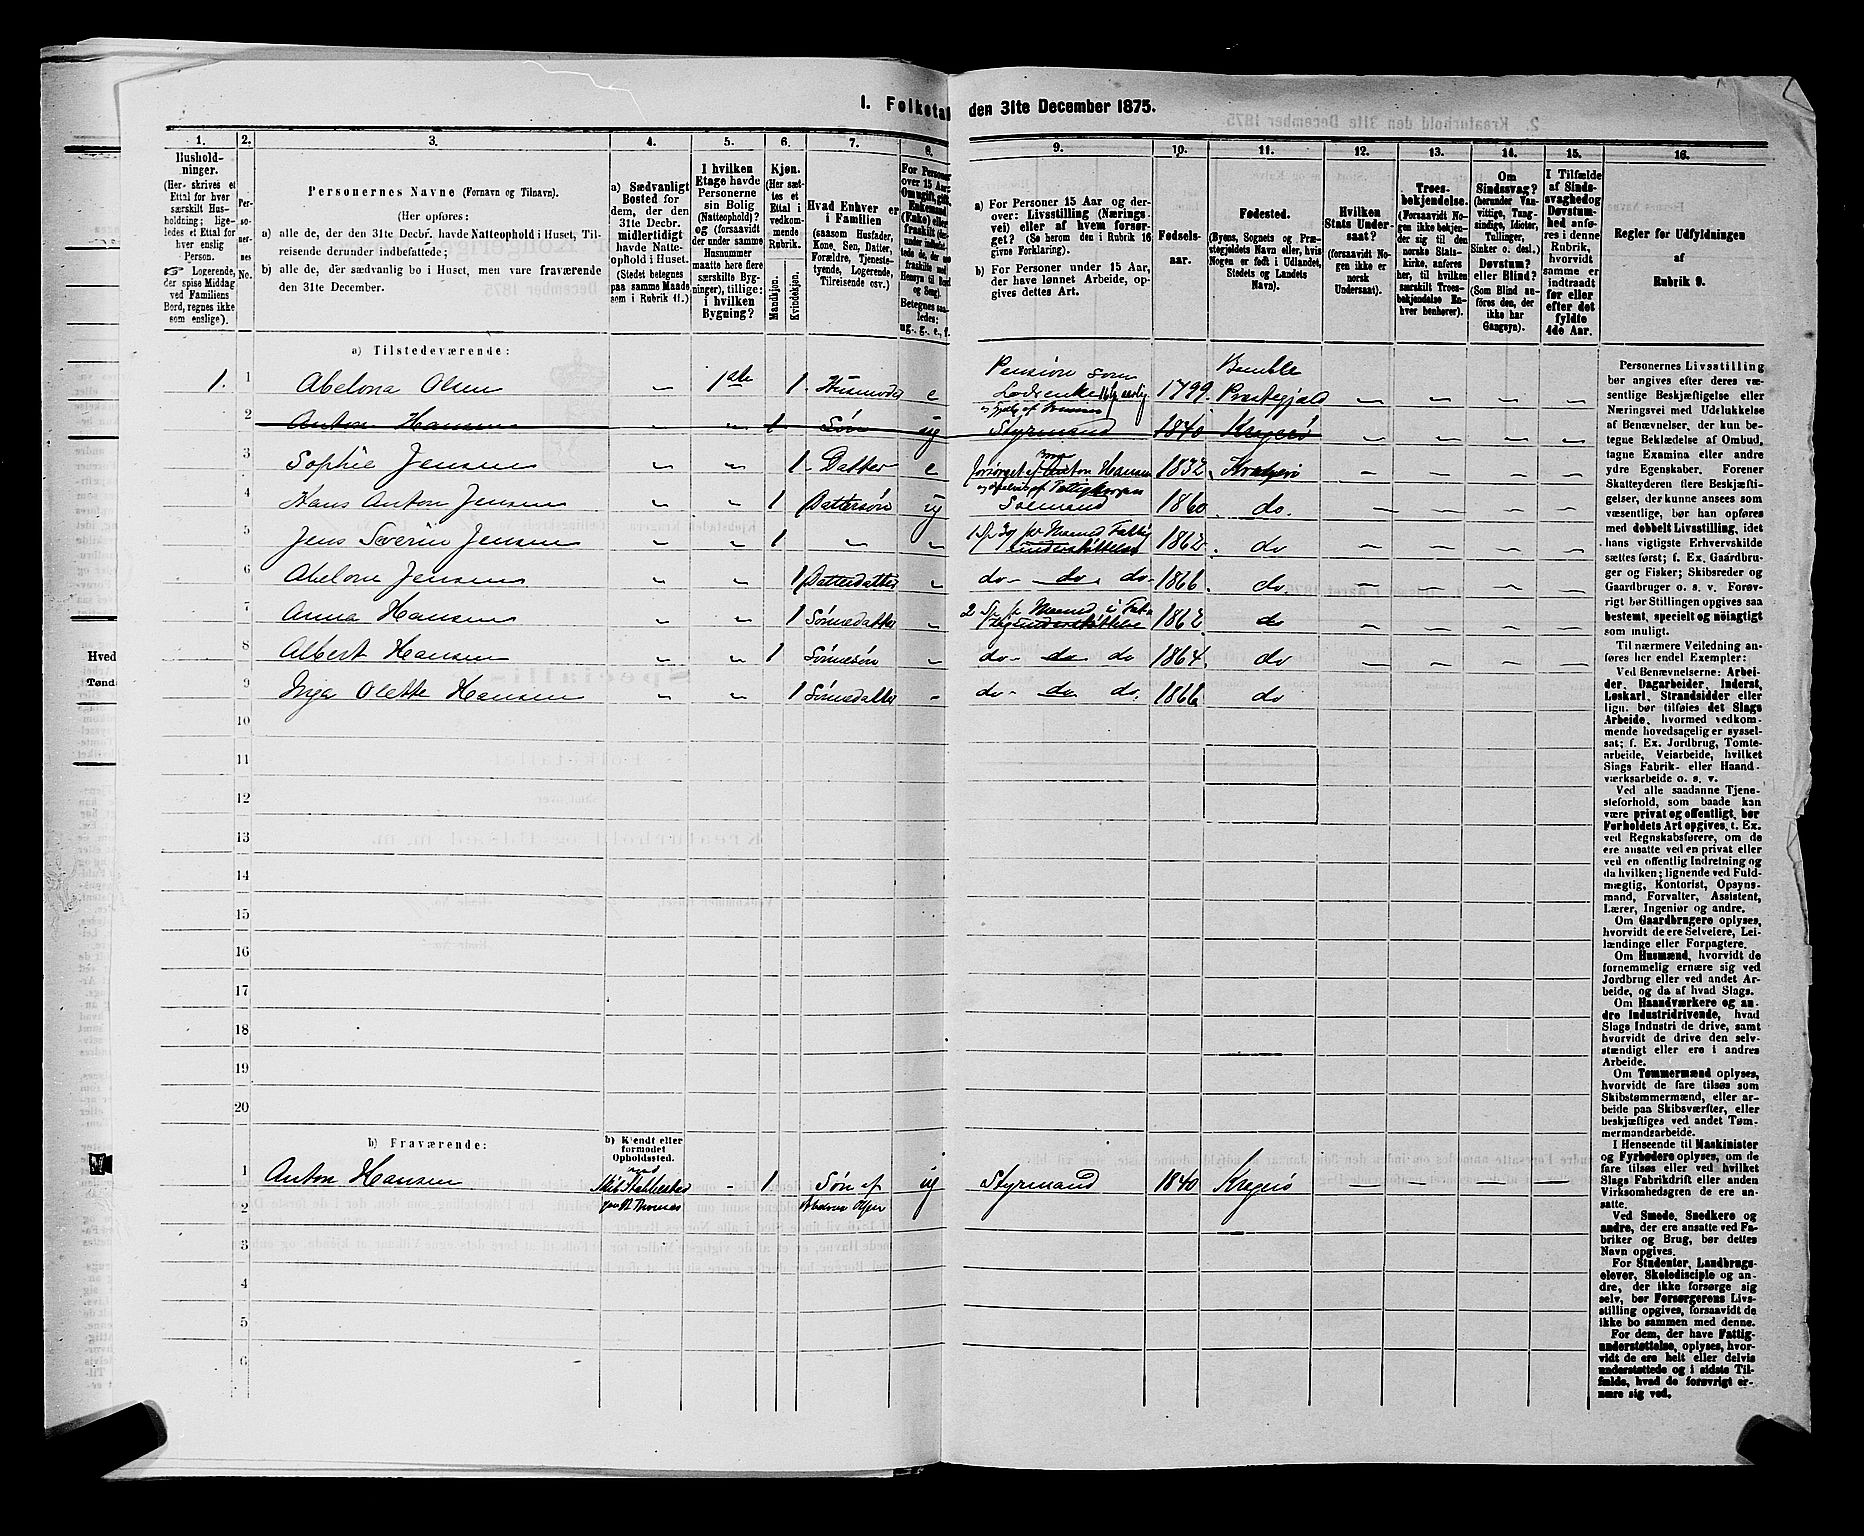 1. Folketal den 31te December 1875.
1.
Hushold-
ninger.
(Her skrives et
Ettal for hver
særskilt Hus-
holdning; lige-
ledes et Ettal for
hver enslig
Person.
Logerende,
der spise Middag
ved Familiens
Bord, regnes ikke
som enslige).
2.
Per-
so-
ner-
nes
No.
3.
Personernes Navne (Fornavn og Tilnavn).
(Her opføres:
a) alle de, der den 31te Decbr. havde Natteophold i Huset, Til-
reisende derunder indbefattede;
b) alle de, der sædvanlig bo i Huset, men vare fraværende
den 31te December.
4.
a) Sædvanligt
Bosted for
dem, der den
31te Decbr.
midlertidigt
havde Natte-
ophold i Huset.
(Stedet betegnes
paa samme Maade
som i Rubrik 11.)
5.
I hvilken
Etage havde
Personerne
sin Bolig
(Natteophold)?
og (forsaavidt
der under samme
Husnummer
maatte høre flere
særskilte Byg-
ninger), tillige:
i hvilken
Bygning?
6.
Kjøn.
(Her sæt-
tes et
Ettal i
vedkom-
mende
Rubrik.
Mandkjøn.
Kvindekjøn.
7.
Hvad Enhver er
i Familien
(saasom Husfader,
Kone, Søn, Datter,
Forældre, Tjeneste-
tyende, Logerende,
Tilreisende osv.)
8.
For Personer
over 15 Aar:
Om ugift, gift,
Enkemand
(Enke) eller
fraskilt
Betegnes saa-
ledes:
ug., g., e., f.
9.
a) For Personer 15 Aar og der-
over: Livsstilling (Nærings-
vei) eller af hvem forsør-
get? (Se herom den i Rubrik 16
givne Forklaring).
b) For Personer under 15 Aar,
der have lønnet Arbeide, op-
gives dettes Art.
10.
Fødsels-
aar.
11.
Fødested.
(Byens, Sognets og Præ-
stegjeldets Navn eller, hvis
Nogen er født i Udlandet,
Stedets og Landets
Navn).
12.
Hvilken
Stats Under-
saat?
(forsaavidt No-
gen ikke er
norsk
Undersaat).
13.
Troes-
bekjendelse.
(Forsaavidt No-
gen ikke bekjen-
der sig til den
norske Stats-
kirke, anføres
her, til hvilken
særskilt Troes-
bekjendelse En-
hver henhører).
14.
Om
Sindssvag?
(herunder Van-
vittige, Tung-
sindige, Idioter,
Tullinger,
Sinker o. desl.)
Døvstum?
eller Blind?
(Som Blind an-
føres den, der
ikke har
Gangsyn).
15.
I Tilfælde
af Sinds-
svaghed og
Døvstum-
hed anfø-
res i denne
Rubrik,
hvorvidt
samme er
indtraadt
før eller
efter det
fyldte
4de Aar.
16.
Regler for Udfyldningen
af
Rubrik 9.
a) Tilstedeværende:
1. 1 Abelona Olsen „ 1ste 1 Husmoder e Pension som Lodsenke 1799. Bamble Præstegjæld
2 Anton Hansen „ „ 1 Søn ug Styrmand 1840 Kragerø
3 Sophie Jensen „ „ 1 Datter e forsørget af Anton Hansen 1832. Kragerø
4 Hans Anton Jensen „ „ 1 Dattersøn ug Sømand 1860. do.
5 Jens Severin Jensen „ „ 1 „ „ 1 Sp 39 pr Maaned Fattig understøttelse 1862. do
6 Abelone Jensen „ „ 1 Datterdatter „ do- do. do- 1866. do
7 Anna Hansen „ „ 1 Sønnedatter „ 2 Sp pr Maaned i Fat- tigunderstøttelse 1862. do
8 Albert Hansen „ „ 1 Sønnesøn „ do- do do 1864. do
9 Inga Olette Hansen „ „ 1 Sønnedatter „ do- do do. 1866 do
10
11
12
13
14
15
16
17
18
19
20
b) Fraværende:
b) Kjendt eller
formodet
Opholdssted.
1 Anton Hansen - 1 Søn af ug Styrmand 1840 Kragerø
2
3
4
5
6
Personernes Livsstilling
bør angives efter deres væ-
sentlige Beskjæftigelse eller
Næringsvei med Udelukkelse
af Benævnelser, der kun be-
tegne Beklædelse af Ombud,
tagne Examina eller andre
ydre Egenskaber. Forener
Skatteyderen flere Beskjæfti-
gelser, der kunne ansees som
væsentlige, bør han opføres
med dobbelt Livsstilling, idet
hans vigtigste Erhvervskilde
sættes først; f. Ex. Gaardbru-
ger og Fisker; Skibsreder og
Gaardbruger o. s. v. Forøv-
rigt bør Stillingen opgives saa
bestemt, specielt og nøiagtigt
som muligt.
Til nærmere Veiledning an-
føres her endel Exempler:
Ved Benævnelserne: Arbei-
der, Dagarbeider, Inderst,
Løskarl, Strandsidder eller
lign. bør tilføies det Slags
Arbeide, hvormed vedkom-
mende hovedsagelig er syssel-
sat; f. Ex. Jordbrug, Tomte-
arbeide, Veiarbeide, hvilket
Slags Fabrik- eller Haand-
værksarbeide o. s. v.
Ved alle saadanne Tjene-
steforhold, som baade kan
være privat og offentligt, bør
Forholdets Art opgives, t. Ex.
ved Regnskabsførere, om de
ere ansatte ved en privat eller
ved en offentlig Indretning og
da hvilken; lignende ved Fuld-
mægtig, Kontorist, Opsyns-
mand, Forvalter, Assistent,
Lærer, Ingeniør og andre.
Om Gaardbrugere oplyses,
hvorvidt de ere Selveiere, Lei-
lændinge eller Forpagtere.
Om Husmænd, hvorvidt de
fornemmelig ernære sig ved
Jordbrug eller ved andet Ar-
beide, og da af hvad Slags.
Om Haandværkere og an-
dre Industridrivende, hvad
Slags Industri de drive, samt
hvorvidt de drive den selv-
stændigt eller ere i andres
Arbeide.
Om Tømmermænd oplyses,
hvorvidt de fare tilsøs som
Skibstømmermænd, eller ar-
beide paa Skibsværfter, eller
beskjæftiges ved andet Tøm-
mermandsarbeide.
I Henseende til Maskinister
og Fyrbødere oplyses, om de
fare tilsøs eller ved hvilket
Slags Fabrikdrift eller anden
Virksomhedsgren de ere an-
satte.
Ved Smede, Snedkere og
andre, der ere ansatte ved Fa-
briker og Brug, bør dettes
Navn opgives.
For Studenter, Landbrugs-
elever, Skoledisciple og an-
dre, der ikke forsørge sig
selv, bør Forsørgerens Livs-
stilling opgives, forsaavidt de
ikke bo sammen med denne.
For dem, der have Fattig-
understøttelse, oplyses, hvor-
vidt de ere helt eller delvis
understøttede og i sidste Til-
fælde, hvad de forøvrigt er-
nære sig ved.